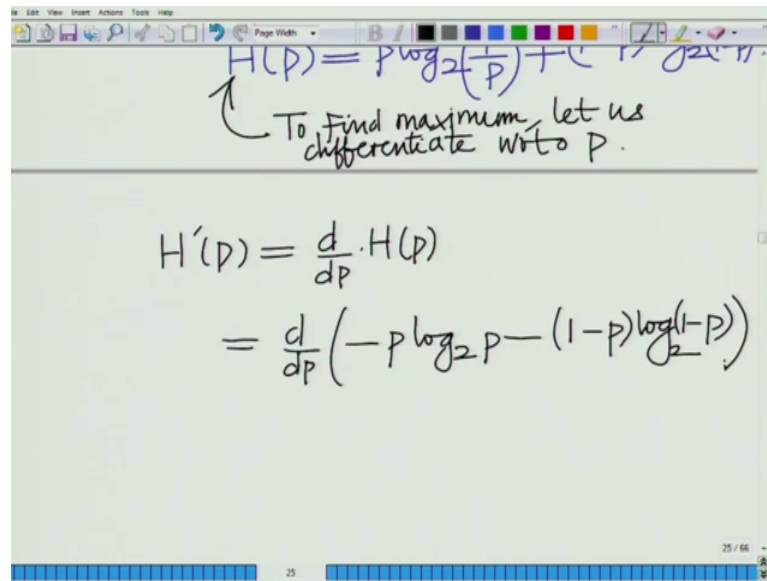 Edit View Insert Actions Tools Help
Page Width B I
H(p) = p log₂(1/p) + (1-p)
To find maximum, let us
differentiate w.r.to p.
H'(p) = d/dp . H(p)
= d/dp (-p log₂ p - (1-p) log₂(1-p))
25 / 66
25